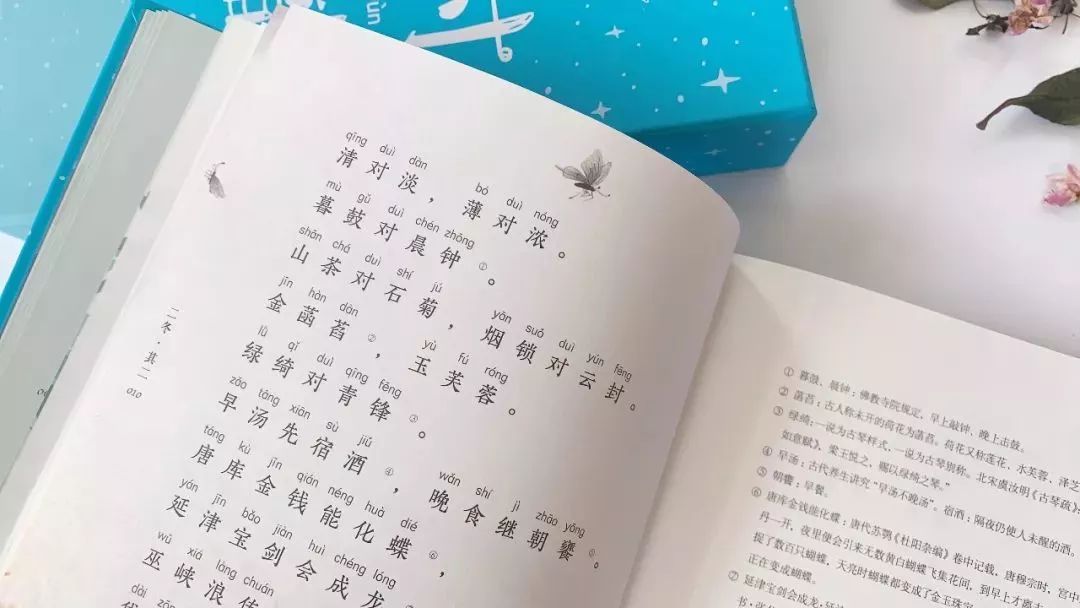 qīng duì dàn bó duì nóng
清对淡，薄对浓。
mù gǔ duì chén zhōng
暮鼓对晨钟①。
shān chá duì shí jú yān suǒ duì yún fēng
山茶对石菊，烟锁对云封。
jīn hàn dàn yù fú róng
金菡萏②，玉芙蓉。
lǜ qǐ duì qīng fēng
绿绮对青锋③。
zǎo tāng xiān sù jiǔ wǎn shí jì zhāo yōng
早汤先宿酒④，晚食继朝饔⑤。
táng kù jīn qián néng huà dié
唐库金钱能化蝶⑥，
yán jīn bǎo jiàn huì chéng lóng
延津宝剑会成龙
wū xiá làng chuán
巫峡浪传
dài
二冬·其二
010
① 暮鼓、晨钟：佛教寺院规定，早上敲钟，晚上击鼓。
② 菡萏：古人称未开的荷花为菡萏。荷花又称莲花、水芙蓉、泽芝
③ 绿绮：一说为古琴样式，一说为古琴别称。北宋虞汝明《古琴疏》：
如意赋》，梁王悦之，赐以绿绮之琴。”
④ 早汤：古代养生讲究“早汤不晚汤”。宿酒：隔夜仍使人未醒的酒。
⑤ 朝饔：早餐。
⑥ 唐库金钱能化蝶：唐代苏鹗《杜阳杂编》卷中记载，唐穆宗时，宫中
丹一开，夜里便会引来无数黄白蝴蝶飞集花间，到早上才离
捉了数百只蝴蝶，天亮时蝴蝶都变成了金玉珠宝
正在变成蝴蝶。
⑦ 延津宝剑会成龙：延
书·张